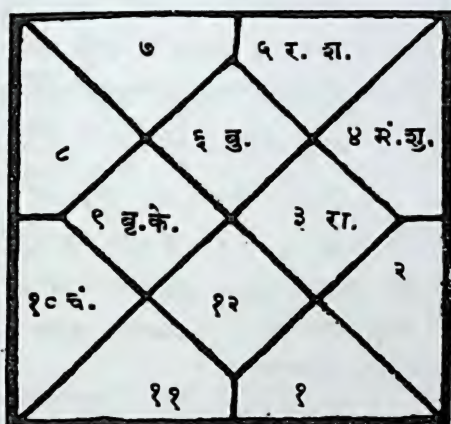 ७
५ र. श.
६ बु.
४ मं.शु.
८
९ बृ.के.
३ रा.
२
१० चं.
१२
११
१